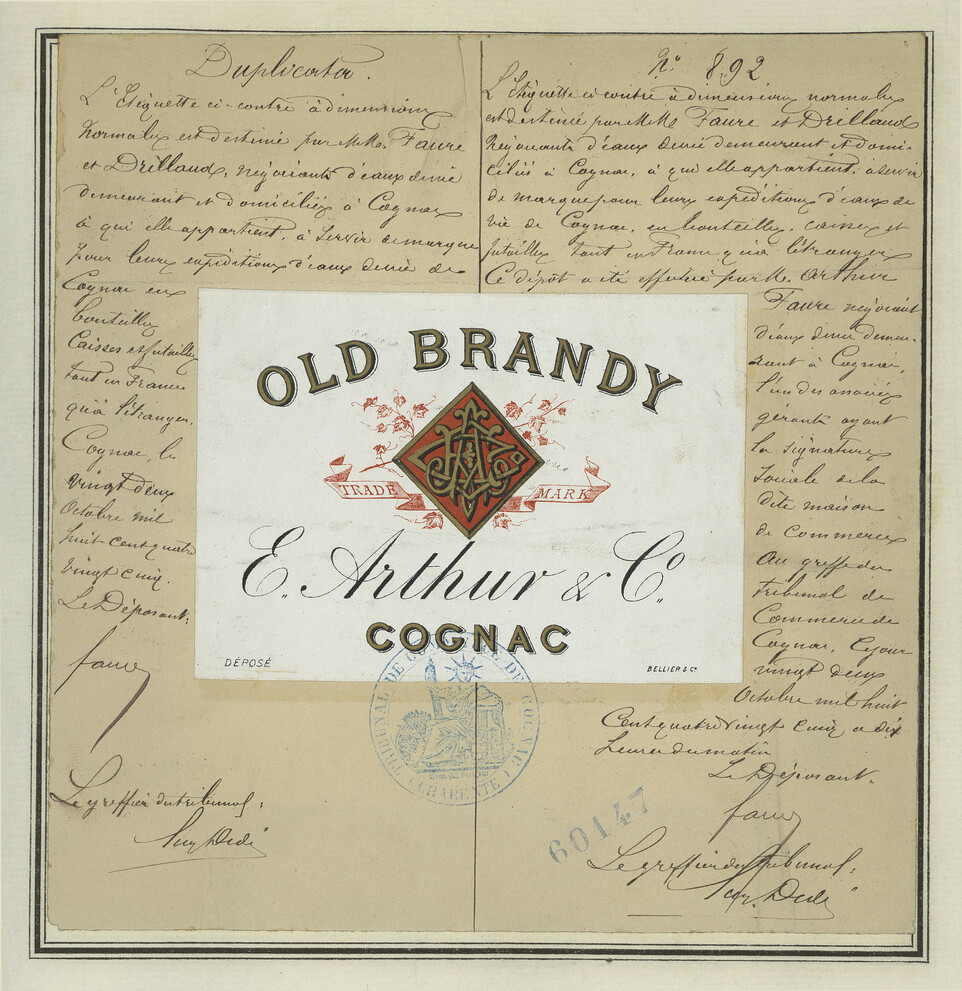 Duplicata.
L'Etiquette ci-contre à dimensions
normales est destinée par M.M. Faure
et Drillaud, négociants d'eaux de vie
demeurant et domiciliés à Cognac
à qui elle appartient, à servir de marque
pour leurs expéditions d'eaux de vie de
Cognac en
bouteilles
Caisses et futailles
tant en France
qu'à l'étranger.
Cognac, le
vingt deux
Octobre mil
huit cent quatre
vingt cinq.
Le Déposant:
faure
Le greffier du tribunal:
N° 892
L'Etiquette ci-contre à dimensions normales
est destinée par M.M. Faure et Drillaud
négociants d'eaux de vie demeurant et domi-
ciliés à Cognac, à qui elle appartient, à servir
de marque pour leurs expéditions d'eaux de
vie de Cognac, en bouteilles, caisses et
futailles tant en France qu'à l'étranger
Ce dépôt a été effectué par M. Arthur
Faure négociant
d'eaux de vie demeu-
rant à Cognac,
l'un des associés
gérants ayant
la signature
sociale de la
dite maison
de commerce
Au greffe du
tribunal de
Commerce de
Cognac, le jour
vingt deux
Octobre mil huit
Cent quatre vingt cinq à dix
heures du matin
Le Déposant.
faure
Le greffier du tribunal:
OLD BRANDY
TRADE MARK
E. Arthur & Co.
COGNAC
DÉPOSÉ
BELLIER & Cie
TRIBUNAL DE COMMERCE DE COGNAC
CHARENTE
60147